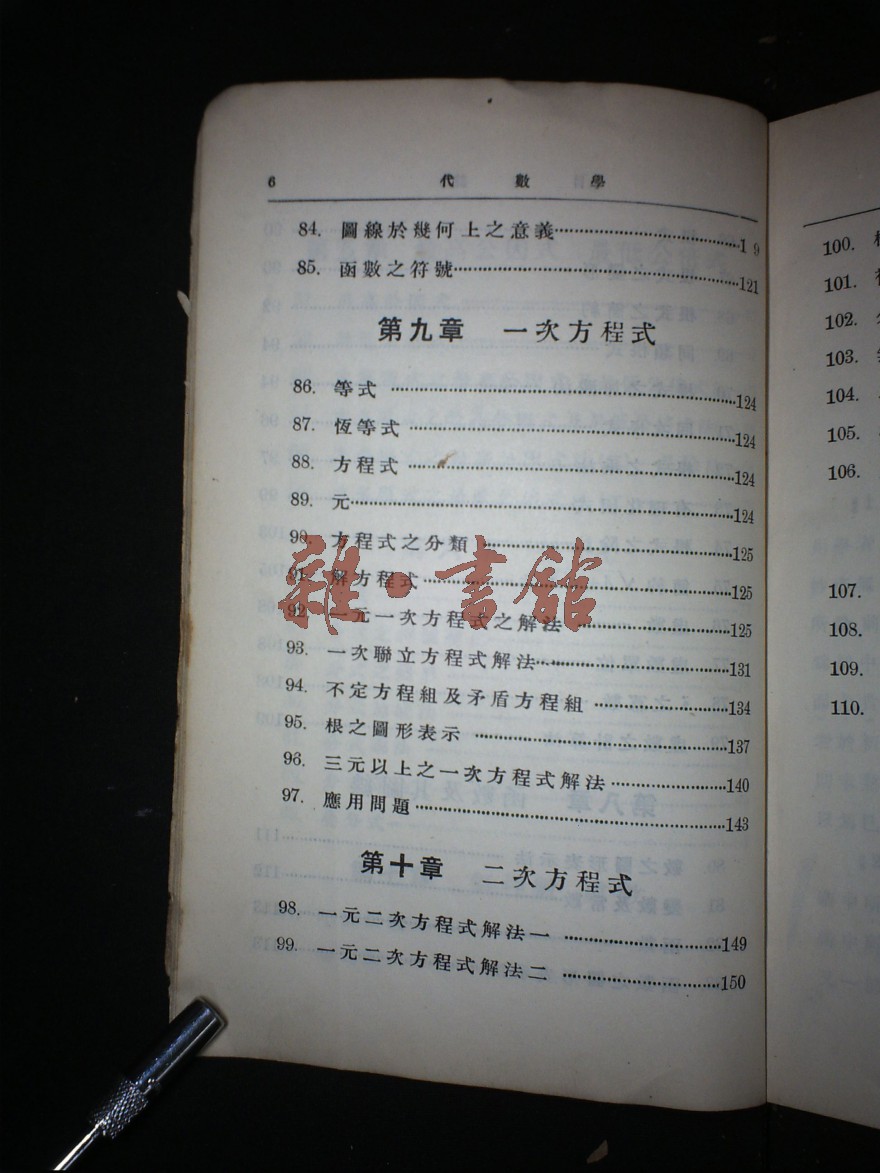 6 代數學
84. 圖線於幾何上之意義 1 9
85. 函數之符號 121
第九章 一次方程式
86. 等式 124
87. 恆等式 124
88. 方程式 124
89. 元 124
90. 方程式之分類 125
91. 解方程式 125
92. 一元一次方程式之解法 125
93. 一次聯立方程式解法 131
94. 不定方程組及矛盾方程組 134
95. 根之圖形表示 137
96. 三元以上之一次方程式解法 140
97. 應用問題 143
第十章 二次方程式
98. 一元二次方程式解法一 149
99. 一元二次方程式解法二 150
雜·書館
100.
101.
102.
103.
104.
105.
106.
107.
108.
109.
110.